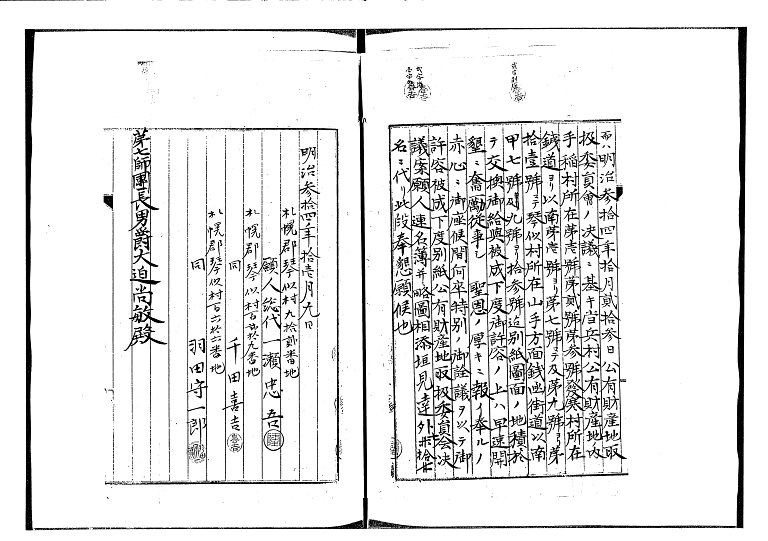 明治参拾四年拾月貳拾参日公有財産地取
扱委員會ノ決議ニ基キ当兵村公有財産地内
手稲村所在第壱號第貳號第参號發寒村所在
銭道ヨリ以南第壱號ヨリ第七號ニテ及第九號ヨリ第
拾壹號ヲ琴似村所在山手方面銭函街道以南
甲七號及九號ヨリ拾参號迠別紙圖面ノ地積ヲ
テ交換御給與被成下度御許容ノ上ハ早速開
墾ニ奮勵従事シ 聖恩ノ厚キニ報イ奉ルノ
赤心ニ御座候間何卒特別ノ御詮議ヲ以テ御
許容被成下度別紙公有財産地取扱委員会决
議案願人連名簿并略圖相添垣見達外
名ニ代リ此段奉懇願候也
明治参拾四年拾壱月九日
札幌郡琴似村九拾貳番地
願人総代 一瀬忠吾
札幌郡琴似村百廿九番地
同 千田喜吉
札幌郡琴似村百六拾六番地
同 羽田守一郎
第七師團長男爵大迫尚敏殿